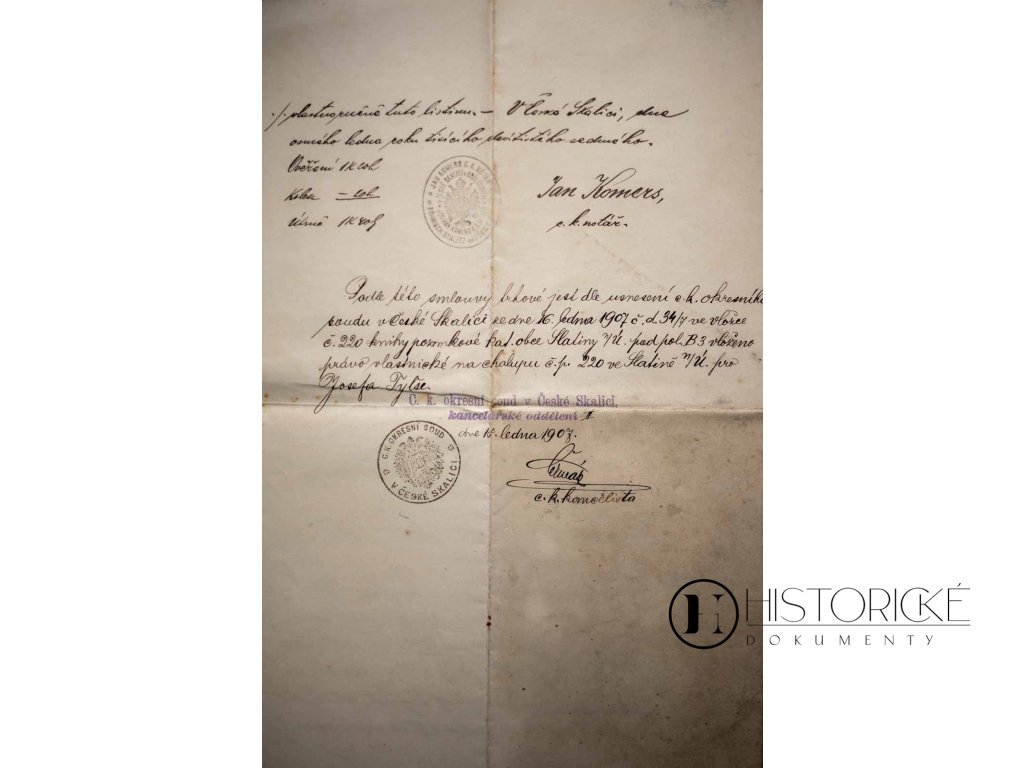 ./. vlastnoručně tuto listinu. — V České Skalici, dne
osmého ledna roku tisícího devítistého sedmého.
Ověření 1K 20h
Kolek — 20h
Úhrně 1K 40h
Jan Komers,
c. k. notář.
Podle této smlouvy trhové jest dle usnesení c. k. okresního
soudu v České Skalici ze dne 16. ledna 1907 č. d. 34/7 ve vložce
č. 220 knihy pozemkové kat. obce Slatiny n/Ú. pod pol. B 3 vloženo
právo vlastnické na chalupu č. p. 220 ve Slatině n/Ú. pro
Josefa Tylše.
C. k. okresní soud v České Skalici,
kancelářské oddělení II
dne 18. ledna 1907.
C. K. OKRESNÍ SOUD
V ČESKÉ SKALICI
c. k. kancelista
HISTORICKÉ
DOKUMENTY